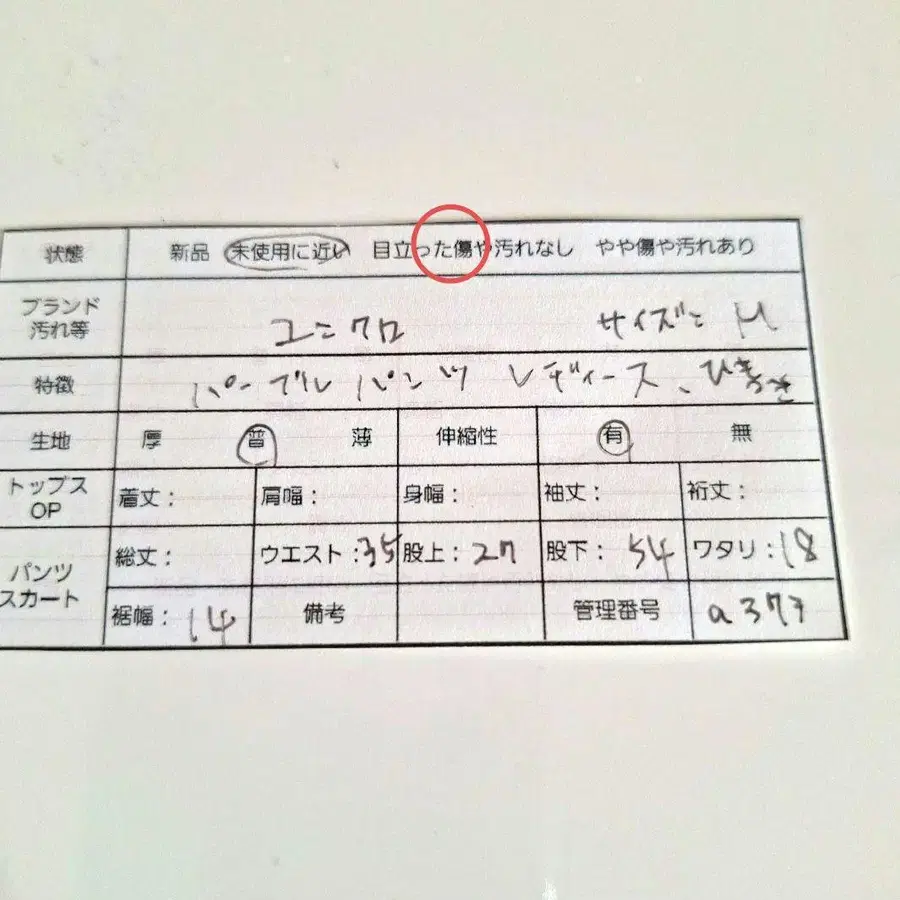 状態 新品 未使用に近い 目立った傷や汚れなし やや傷や汚れあり
ブランド
汚れ等 ユニクロ サイズ: M
特徴 パープル パンツ レディース、ひもつき
生地 厚 普 薄 伸縮性 有 無
トップス
OP 着丈: 肩幅: 身幅: 袖丈: 裄丈:
パンツ
スカート 総丈: ウエスト:35 股上:27 股下:54 ワタリ:18
裾幅:14 備考 管理番号 a377